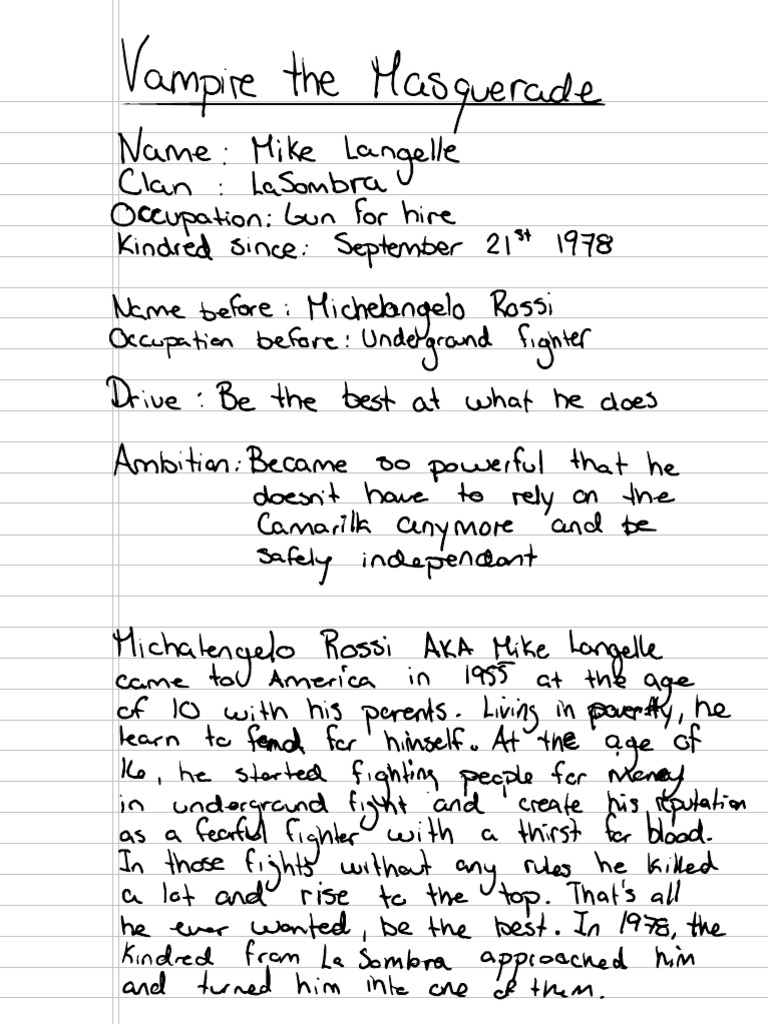 Vampire the Masquerade
Name: Mike Langelle
Clan : LaSombra
Occupation: Gun for hire
Kindred since: September 21st 1978
Name before: Michelangelo Rossi
Occupation before: Underground fighter
Drive : Be the best at what he does
Ambition: Became so powerful that he
doesn't have to rely on the
Camarilla anymore and be
safely independant
Michalengelo Rossi AKA Mike Langelle
came to America in 1955 at the age
of 10 with his parents. Living in poverty, he
learn to fend for himself. At the age of
16, he started fighting people for money
in underground fight and create his reputation
as a fearful fighter with a thirst for blood.
In those fights without any rules he killed
a lot and rise to the top. That's all
he ever wanted, be the best. In 1978, the
Kindred from La Sombra approached him
and turned him into one of them.